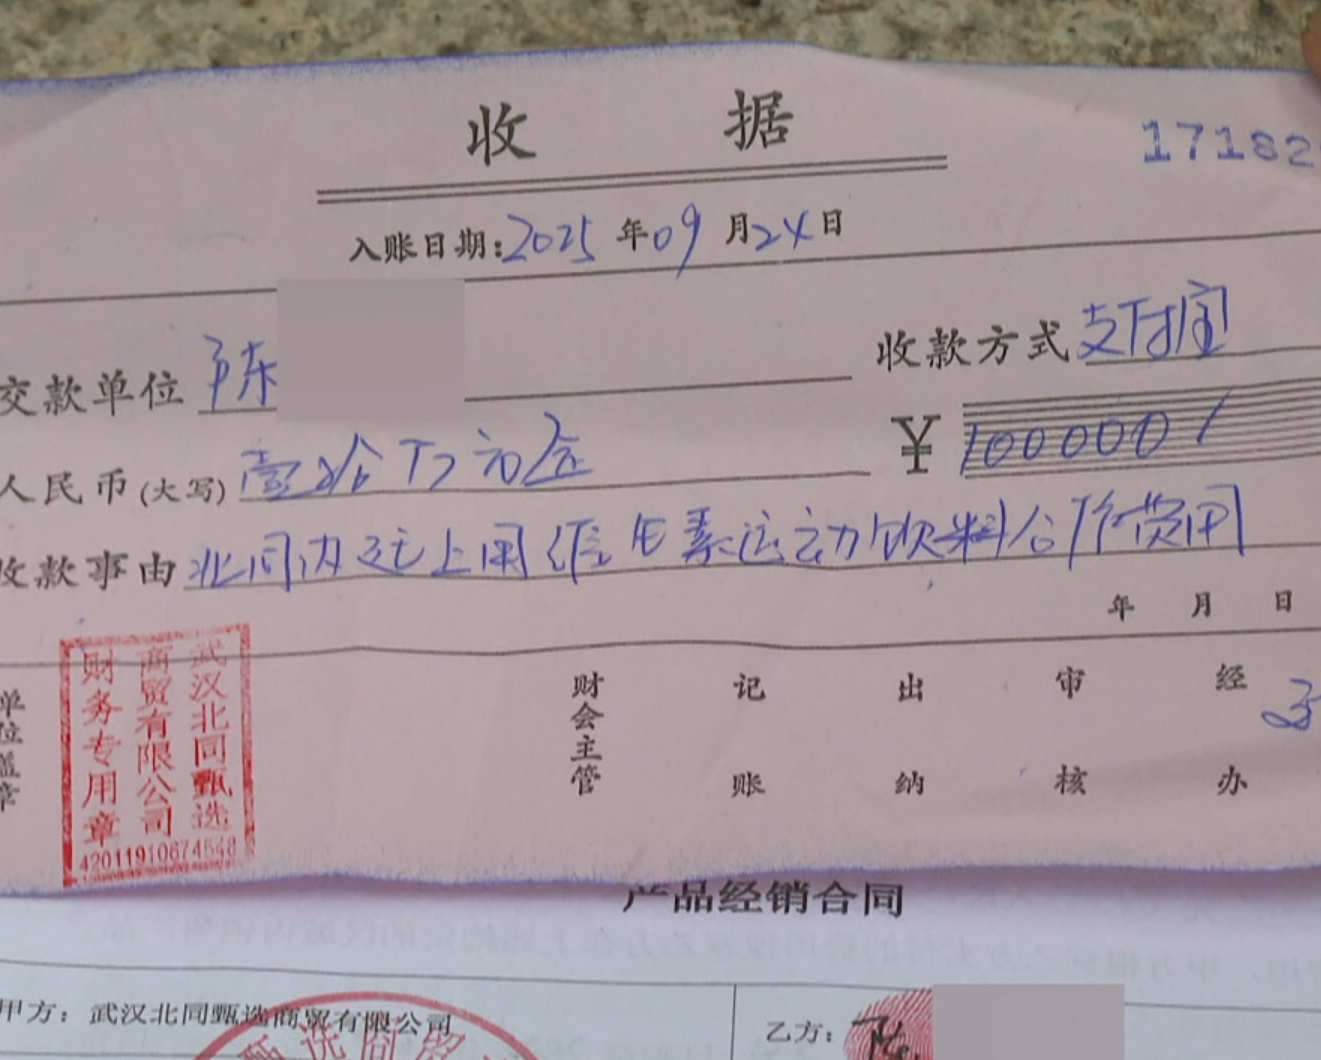 收 据
17182
入账日期:2025年09月24日
交款单位 陈
收款方式 支付宝
人民币(大写) 壹拾万元整
¥ 100000
收款事由 北同内 上用维生素运动饮料合作费用
年 月 日
单位盖章
武汉北同甄选
商贸有限公司
财务专用章
4201191067454
财会主管
记账
出纳
审核
经办
产品经销合同
甲方：武汉北同甄选商贸有限公司
乙方：陈
甄选商贸